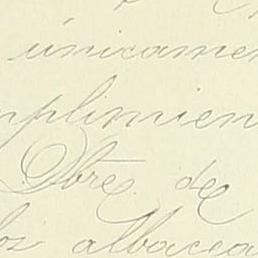 únicamen
mplimien
Sobre de
los albacea